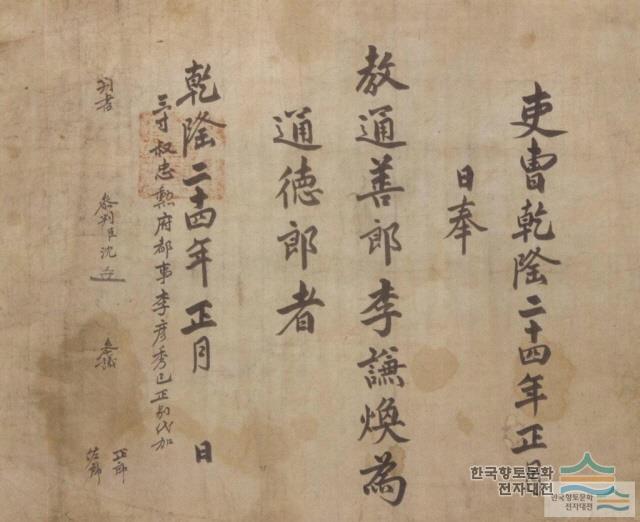 吏曹乾隆二十四年正月
日奉
敎通善郎李謙煥為
通德郎者
乾隆二十四年正月 日
三寸叔忠勲府都事李彦秀己正別代加
判書
參判臣沈
參議
正郎
佐郎
한국향토문화
전자대전
한국향토문화
전자대전